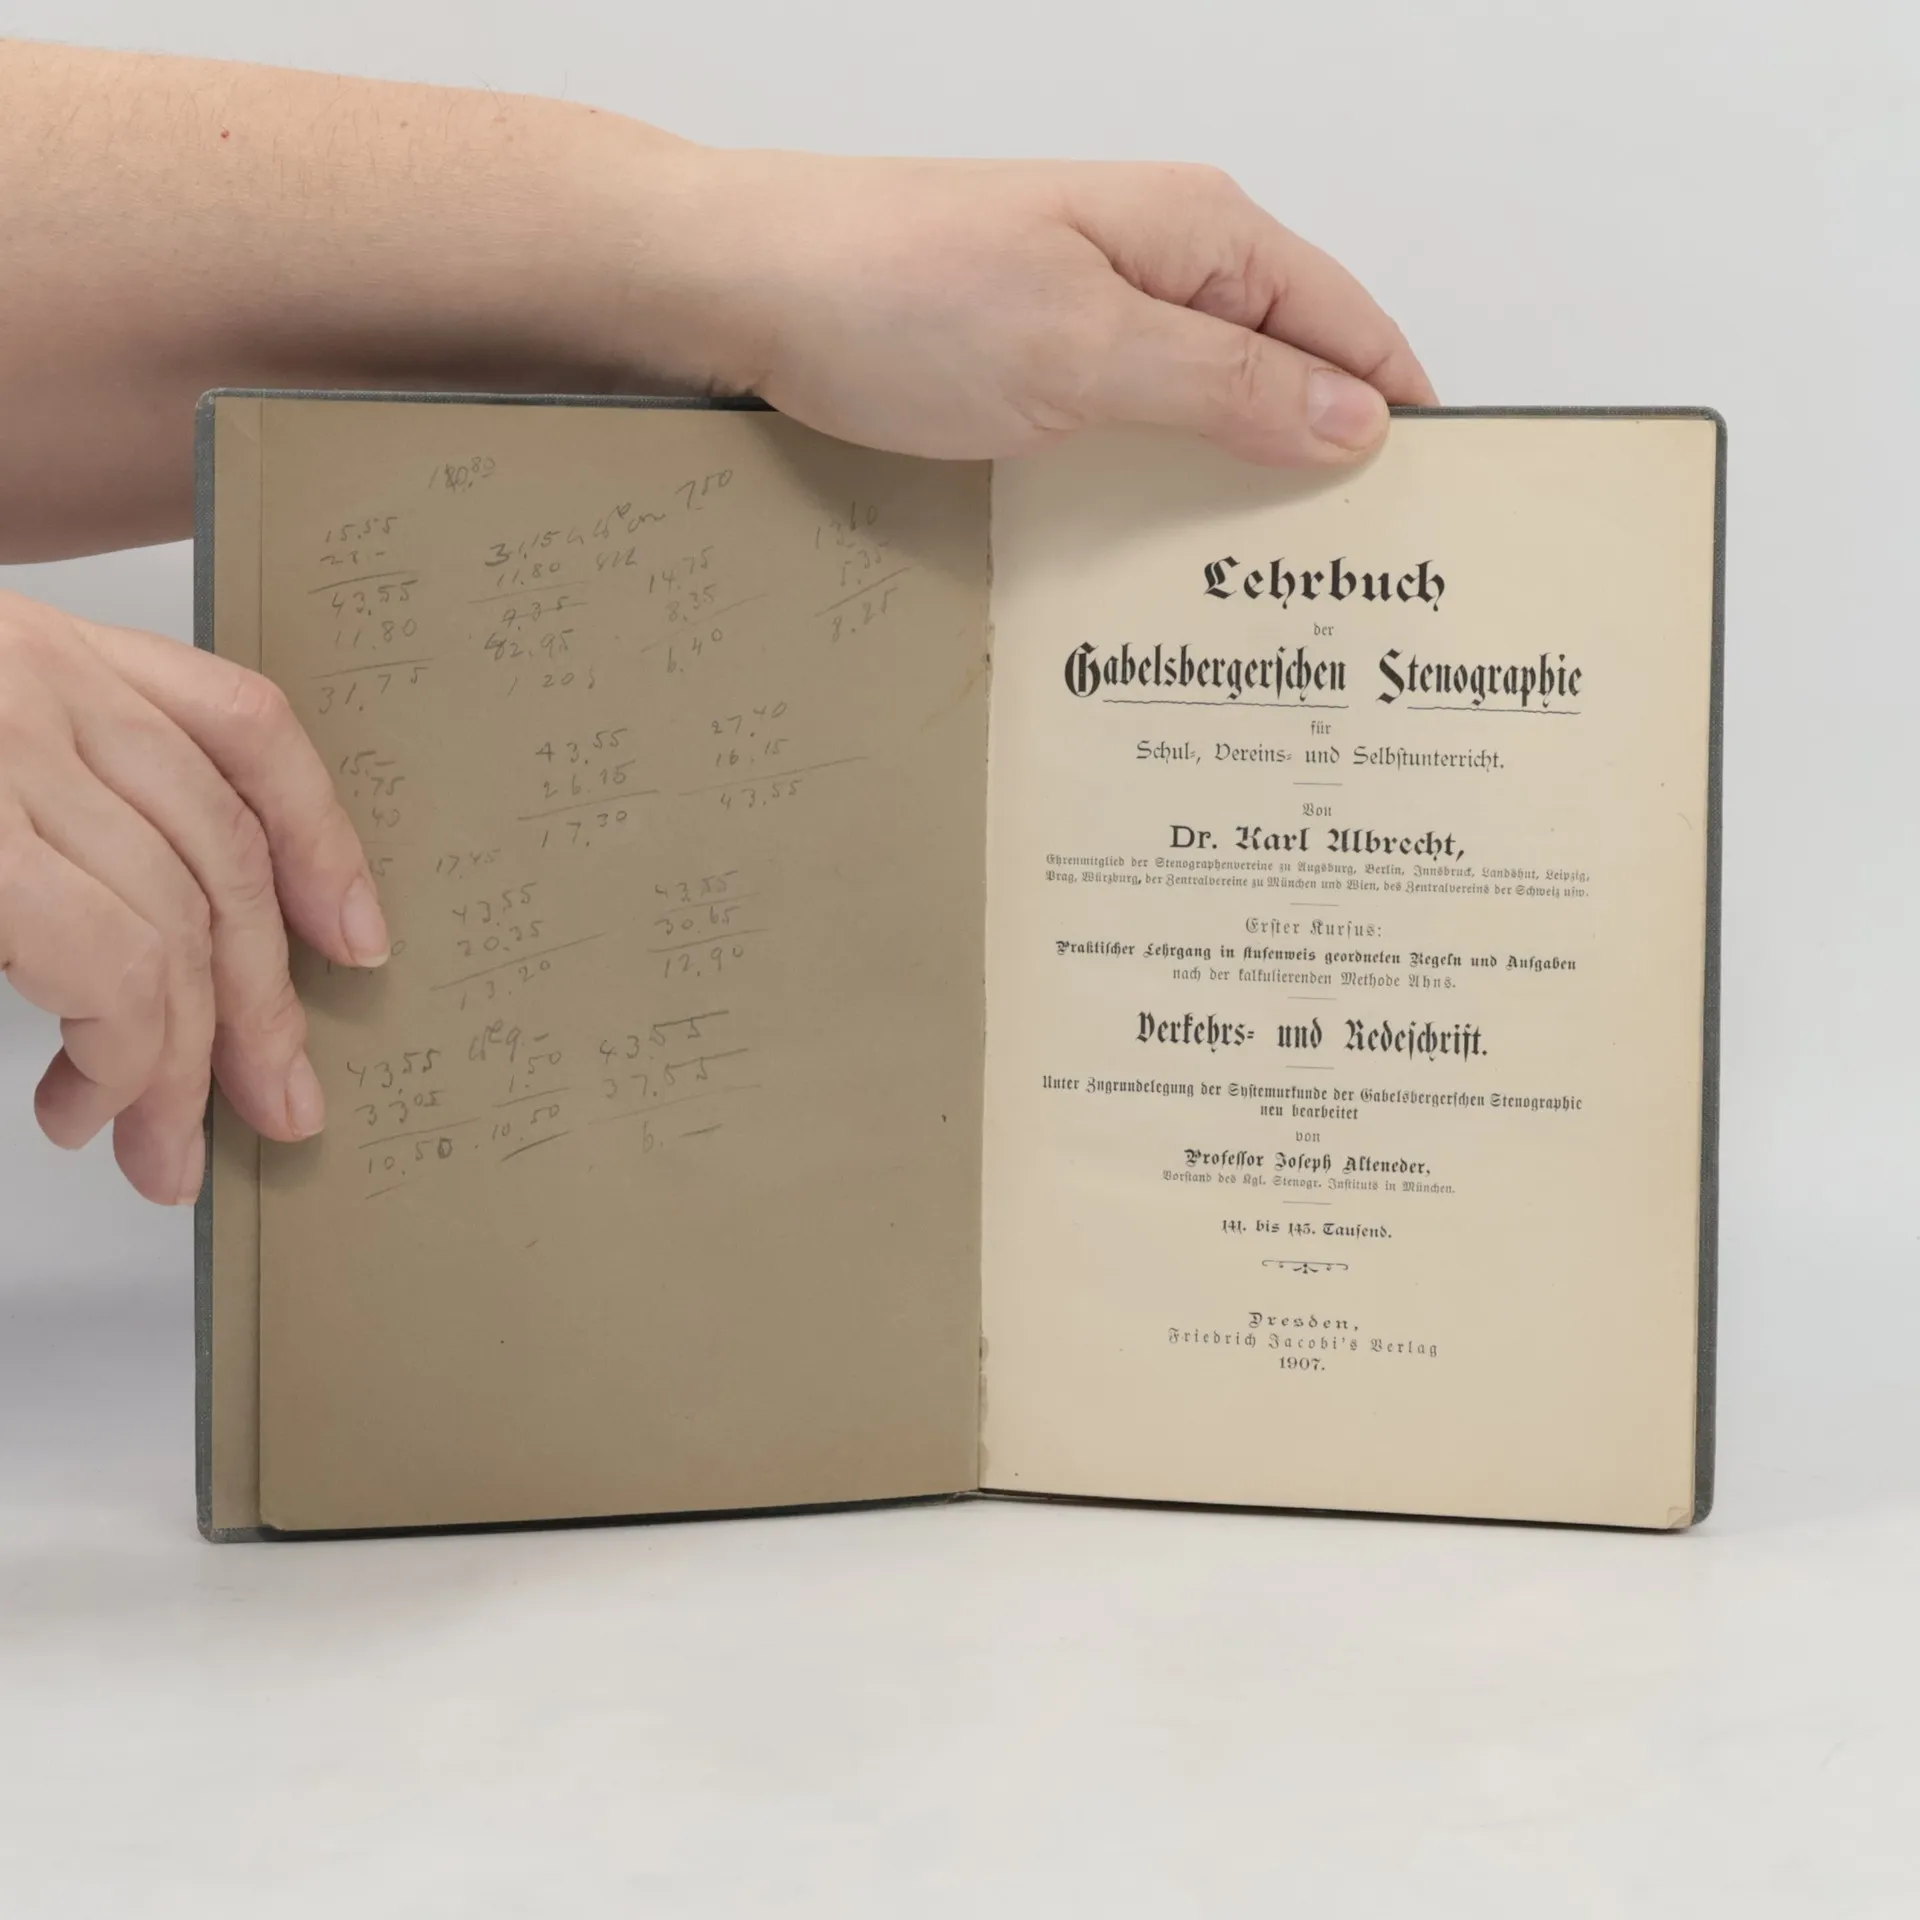 15.55
28.-
43.55
11.80
31.75
31.15
11.80
9.35
82.95
1 20
750
14.75
8.35
6.40
13.60
5.35
8.25
15.-
.75
40
17.45
43.55
26.15
17.30
27.40
16.15
43.55
43.55
30.35
13.20
43.55
30.65
12.90
43.55
33.05
10.50
9.-
1.50
10.50
43.55
37.55
6.-
Lehrbuch
der
Gabelsbergerſchen Stenographie
für
Schul-, Vereins- und Selbſtunterricht.
Von
Dr. Karl Albrecht,
Ehrenmitglied der Stenographenvereine zu Augsburg, Berlin, Innsbruck, Landshut, Leipzig,
Prag, Würzburg, der Zentralvereine zu München und Wien, des Zentralvereins der Schweiz uſw.
Erſter Kurſus:
Praktiſcher Lehrgang in ſtufenweis geordneten Regeln und Aufgaben
nach der kalkulierenden Methode Ahns.
Verkehrs- und Redeſchrift.
Unter Zugrundelegung der Syſtemurkunde der Gabelsbergerſchen Stenographie
neu bearbeitet
von
Profeſſor Joſeph Alteneder,
Vorſtand des Kgl. Stenogr. Inſtituts in München.
141. bis 145. Tauſend.
Dresden,
Friedrich Jacobi's Verlag
1907.